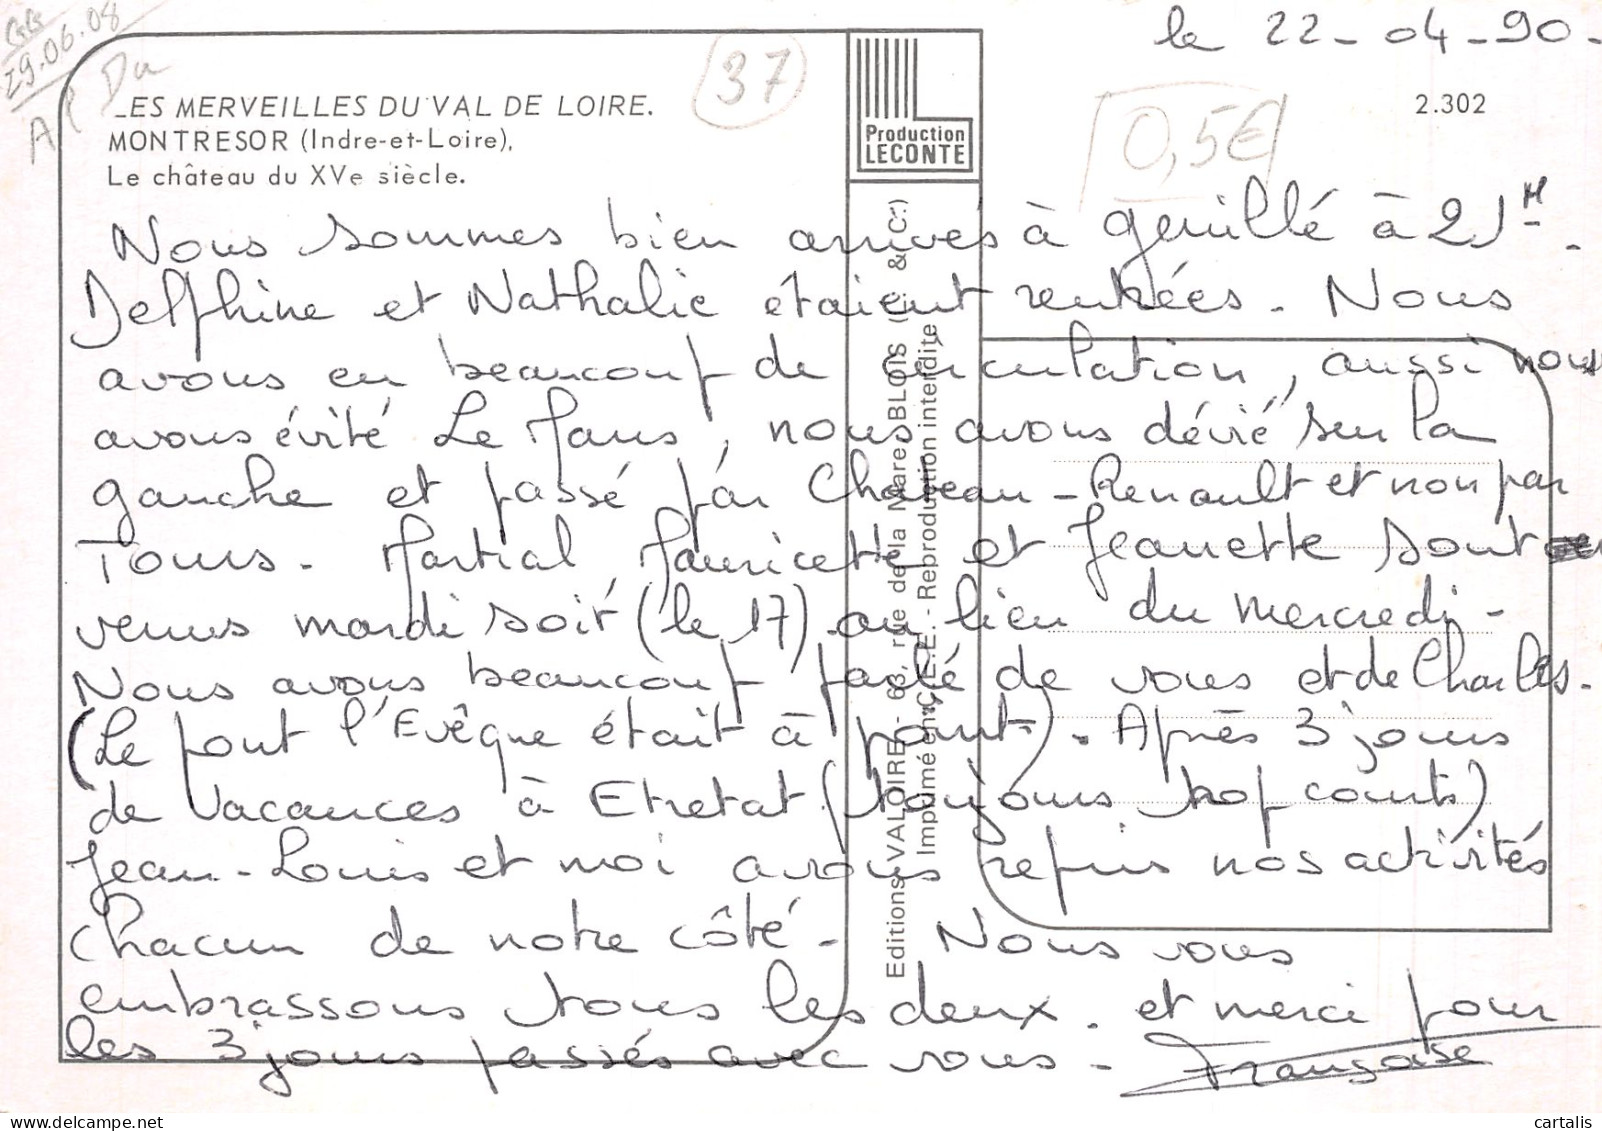 29.06.08
37
le 22-04-90-
LES MERVEILLES DU VAL DE LOIRE.
MONTRESOR (Indre-et-Loire),
Le château du XVe siècle.
Production
LECONTE
0,5€
2.302
Nous sommes bien arrivés à genillé à 21H.
Delphine et Nathalie étaient rentrées. Nous
avons eu beaucoup de circulation, aussi nous
avons évité Le Mans, nous avons dévié sur la
gauche et passé par Chateau-Renault et non par
Tours. Martial, Mauricette et Jeanette sont
venus mardi soir (le 17) au lieu du mercredi-
Nous avons beaucoup parlé de vous et de Charles.
(Le pont l'Evêque était à point). Après 3 jours
de vacances à Etretat (toujours trop courts)
Jean-Louis et moi avons repris nos activités
chacun de notre côté. Nous vous
embrassons tous les deux. et merci pour
les 3 jours passés avec vous-
Françoise
Editions VALOIRE - 63, rue de la Mare, BLOIS (L. & C.)
Imprimé en C.E.E. - Reproduction interdite
cartalis